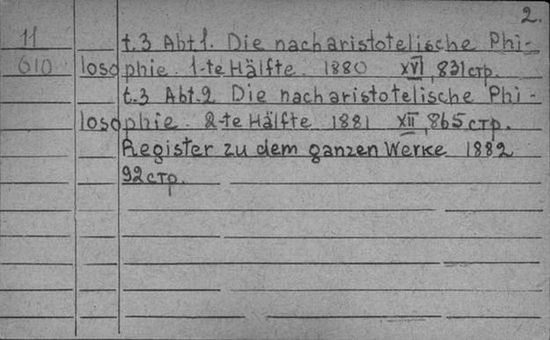 2.
11 t.3 Abt 1. Die nacharistotelische Phi-
610 losophie. 1-te Hälfte. 1880 XVI, 831 стр.
t.3 Abt.2 Die nacharistotelische Phi-
losophie. 2-te Hälfte 1881 XII, 865 стр.
Register zu dem ganzen Werke 1882
92 стр.